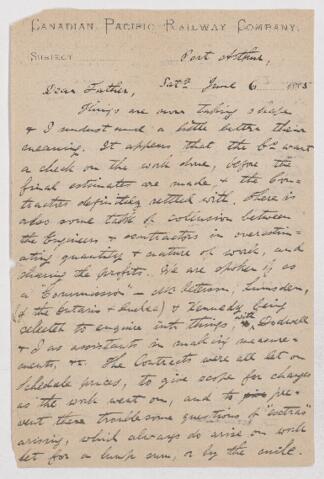 CANADIAN PACIFIC RAILWAY COMPANY.
SUBJECT
Port Arthur,
Sat.y June 6 1885
Dear Father,
Things are now taking shape
& I understand a little better their
meaning. It appears that the Co. want
a check on the work done, before the
final estimates are made, & the Con-
tractor definitely settled with. There is
also some talk of collusion between
the Engineers & contractors in overestim-
ating quantity & nature of work, and
sharing the profits. We are spoken of as
a "Commission" — Lumsden,
(of the Ontario & Quebec) & Kennedy being
selected to enquire into things, with Dodwell
& I as assistants in making measure-
ments, &c. The Contracts were all let on
schedule prices, to give scope for changes
as the work went on, and to pre-
vent these troublesome questions of "extras"
arising, which always do arise on work
let for a lump sum, or by the mile.